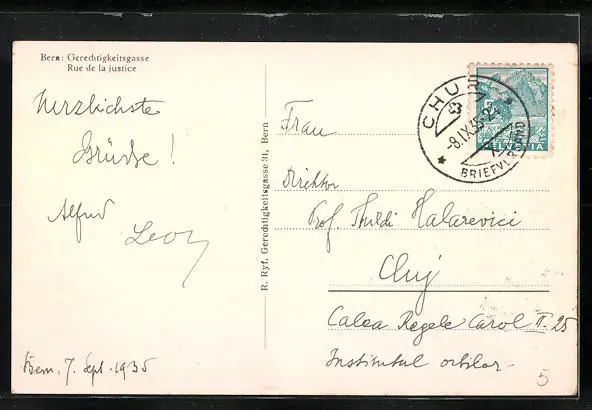 Bern: Gerechtigkeitsgasse
Rue de la justice
Herzlichste
Grüsse!
Alfred
Bern, 7. Sept. 1935
R. Ryf, Gerechtigkeitsgasse 31, Bern
CHUR
-8.IX.35-24
BRIEFVERSAND
5
HELVETIA
Frau
Direktor
Prof. Halarevici
Cluj
Calea Regele Carol II. 25
Institutul orbilor
5